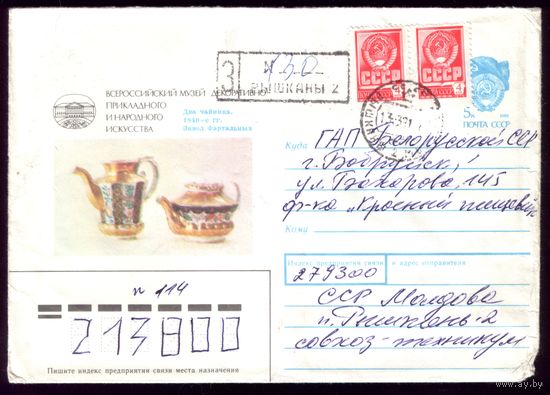 ВСЕРОССИЙСКИЙ МУЗЕЙ ДЕКОРАТИВНО-
ПРИКЛАДНОГО
И НАРОДНОГО
ИСКУССТВА
Два чайника.
1840-е гг.
Завод Фартальных
З
№
РЫШКАНЫ 2
СССР
СССР
5к
ПОЧТА СССР
Куда
ГАП Белорусской ССР
г. Бобруйск,
ул. Бахарова, 145
ф-ка „Красный пищевик
Кому
Индекс предприятия связи и адрес отправителя
279300
ССР Молдова
п. Рышкань-2
совхоз-техникум
п 114
213800
Пишите индекс предприятия связи места назначения
ay.by